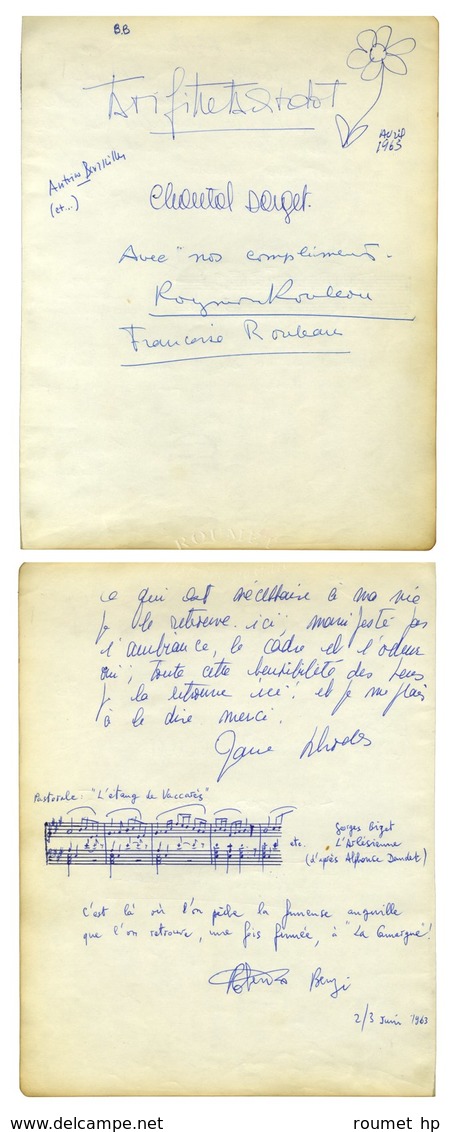 B.B
Brigitte Bardot
Avril
1963
Antoine Bourseiller
(et...)
Chantal Darget.
Avec nos compliments.
Raymond Rouleau
Françoise Rouleau
ROUMET
ce qui est nécessaire à ma vie
je le retrouve ici, manifesté par
l'ambiance, le cadre et l'odeur
oui, toute cette sensibilité des sens
je la retrouve ici! et je me plais
à le dire merci.
Jane Rhodes
Pastorale: "L'étang de Vaccarès"
etc.
Georges Bizet
L'Arlésienne
(d'après Alphonse Daudet)
C'est là où l'on pêche la fameuse anguille
que l'on retrouve, une fois fumée, à "La Camargue"!
Roberto Benzi
2/3 Juin 1963
www.delcampe.net
roumet hp